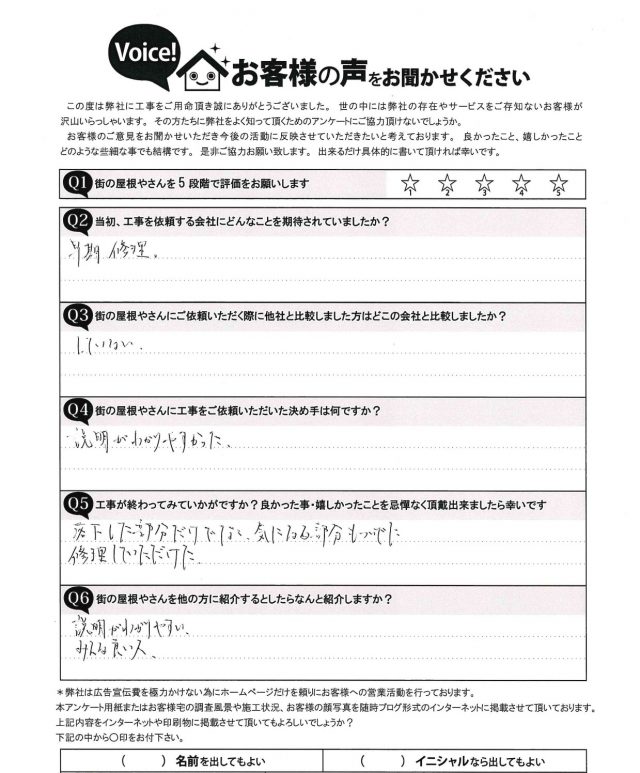 Voice! お客様の声をお聞かせください
この度は弊社に工事をご用命頂き誠にありがとうございました。 世の中には弊社の存在やサービスをご存知ないお客様が
沢山いらっしゃいます。 その方たちに弊社をよく知って頂くためのアンケートにご協力頂けないでしょうか。
お客様のご意見をお聞かせいただき今後の活動に反映させていただきたいと考えております。 良かったこと、嬉しかったこと
どのような些細な事でも結構です。 是非ご協力お願い致します。 出来るだけ具体的に書いて頂ければ幸いです。
Q1 街の屋根やさんを5段階で評価をお願いします 1 2 3 4 5
Q2 当初、工事を依頼する会社にどんなことを期待されていましたか?
早期修理。
Q3 街の屋根やさんにご依頼いただく際に他社と比較しました方はどこの会社と比較しましたか?
していない。
Q4 街の屋根やさんに工事をご依頼いただいた決め手は何ですか?
説明がわかりやすかった。
Q5 工事が終わってみていかがですか?良かった事・嬉しかったことを忌憚なく頂戴出来ましたら幸いです
落下した部分だけでなく、気になる部分も
修理していただけた。
Q6 街の屋根やさんを他の方に紹介するとしたらなんと紹介しますか?
説明がわかりやすい。
みんな良い人。
*弊社は広告宣伝費を極力かけない為にホームページだけを頼りにお客様への営業活動を行っております。
本アンケート用紙またはお客様宅の調査風景や施工状況、お客様の顔写真を随時ブログ形式のインターネットに掲載させて頂いております。
上記内容をインターネットや印刷物に掲載させて頂いてもよろしいでしょうか?
下記の中から〇印をお付下さい。
( ) 名前を出してもよい ( ) イニシャルなら出してもよい